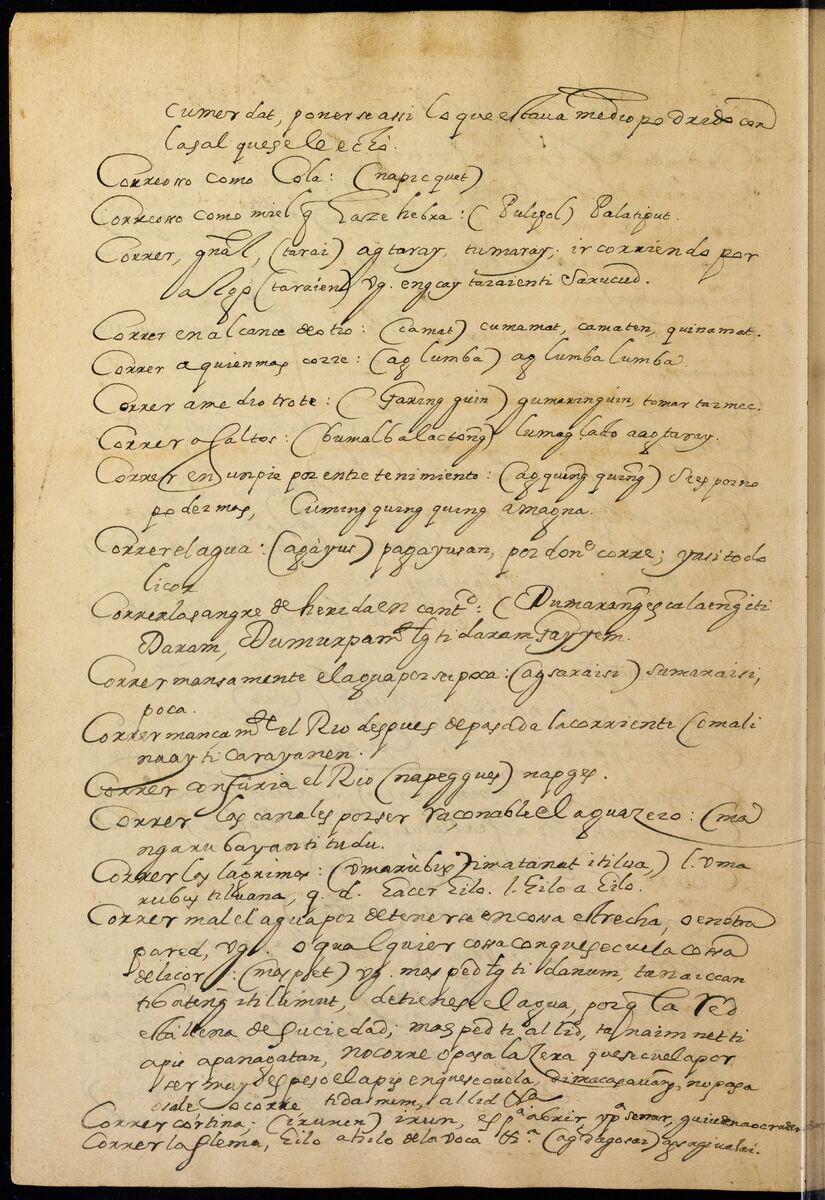 cumerdat, ponerse assi lo que estaua medio podrido con
la sal que se le echó.
Correoso como Cola: (napicquet)
Correoso como miel q̃ haze hebra: (Pulipol) Palatiput.
Correr, gñal, (tarai) agtaray, tumaray; ir corriendo por
algo (taraien) vg. engcay taraienti Sarucud.
Correr en alcance de otro: (camat) cumamat, camaten, quinamat.
Correr a quien mas corre: (aglumba) aglumbalumba.
Correr a medio trote: (Garingguin) gumaringuin, tomar tarmec.
Correr a saltos: (bumalbalactong) lumagto aagtaray.
Correr en un pie por entretenimiento: (agquingquing) si es por no
poder mas, Cumingquingquing a magna.
Correr el agua: (agàyus) pagayusan, por donẽ corre; y assi todo
licor
Correr la sangre de herida en cantd: (Dumaranges cala engiti
Daram, Dumurpamte ti daram
Correr mansamente el agua por ser poca: (agsaraisi) sumaraisi,
poca.
Correr mança mte el Rio despues de pasada la corriente (omali
nuay ti carayanen.
Correr con furia el Rio (napegques) napges.
Correr las canales por ser raçonable el aguazero: (ma
ngarubayan ti tudu.
Correr las lagrimas: (vmarùbis imatanat itilua,) l. vma
rubis ti luana, q. d. hacer hilo. l. hilo a hilo.
Correr mal el agua por detenerse en cossa estrecha, o en otra
pared, vg. o qualquier cossa con que se cuela cossa
de licor: (mospèt) vg. mosped ti danum, ta naiccan
ti bateng iti limut, detienese el agua, porq̃ la red
esta llena de suciedad; mosped ti allid, ta naimnet ti
apis apanagatan, no corre o pasa la zera que se cuela por
ser muy espeso el apis en que se cuela, no pasa
o sale o corre, ti danum, allid
Correr cortina; (irunen) irun, es pa abrir,
Correr la flema, hilo a hilo de la voca